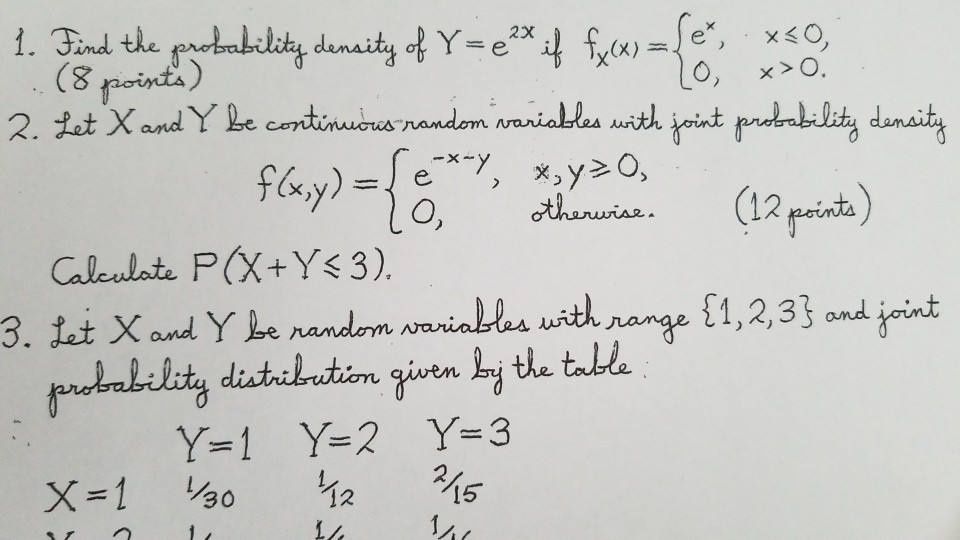 1. Find the probability density of Y = e^{2X} if f_X(x) = { e^x, x ≤ 0,
(8 points) 0, x > 0.
2. Let X and Y be continuous random variables with joint probability density
f(x,y) = { e^{-x-y}, x, y ≥ 0,
0, otherwise. (12 points)
Calculate P(X + Y ≤ 3).
3. Let X and Y be random variables with range {1, 2, 3} and joint
probability distribution given by the table:
Y = 1 Y = 2 Y = 3
X = 1 1/30 1/12 2/15